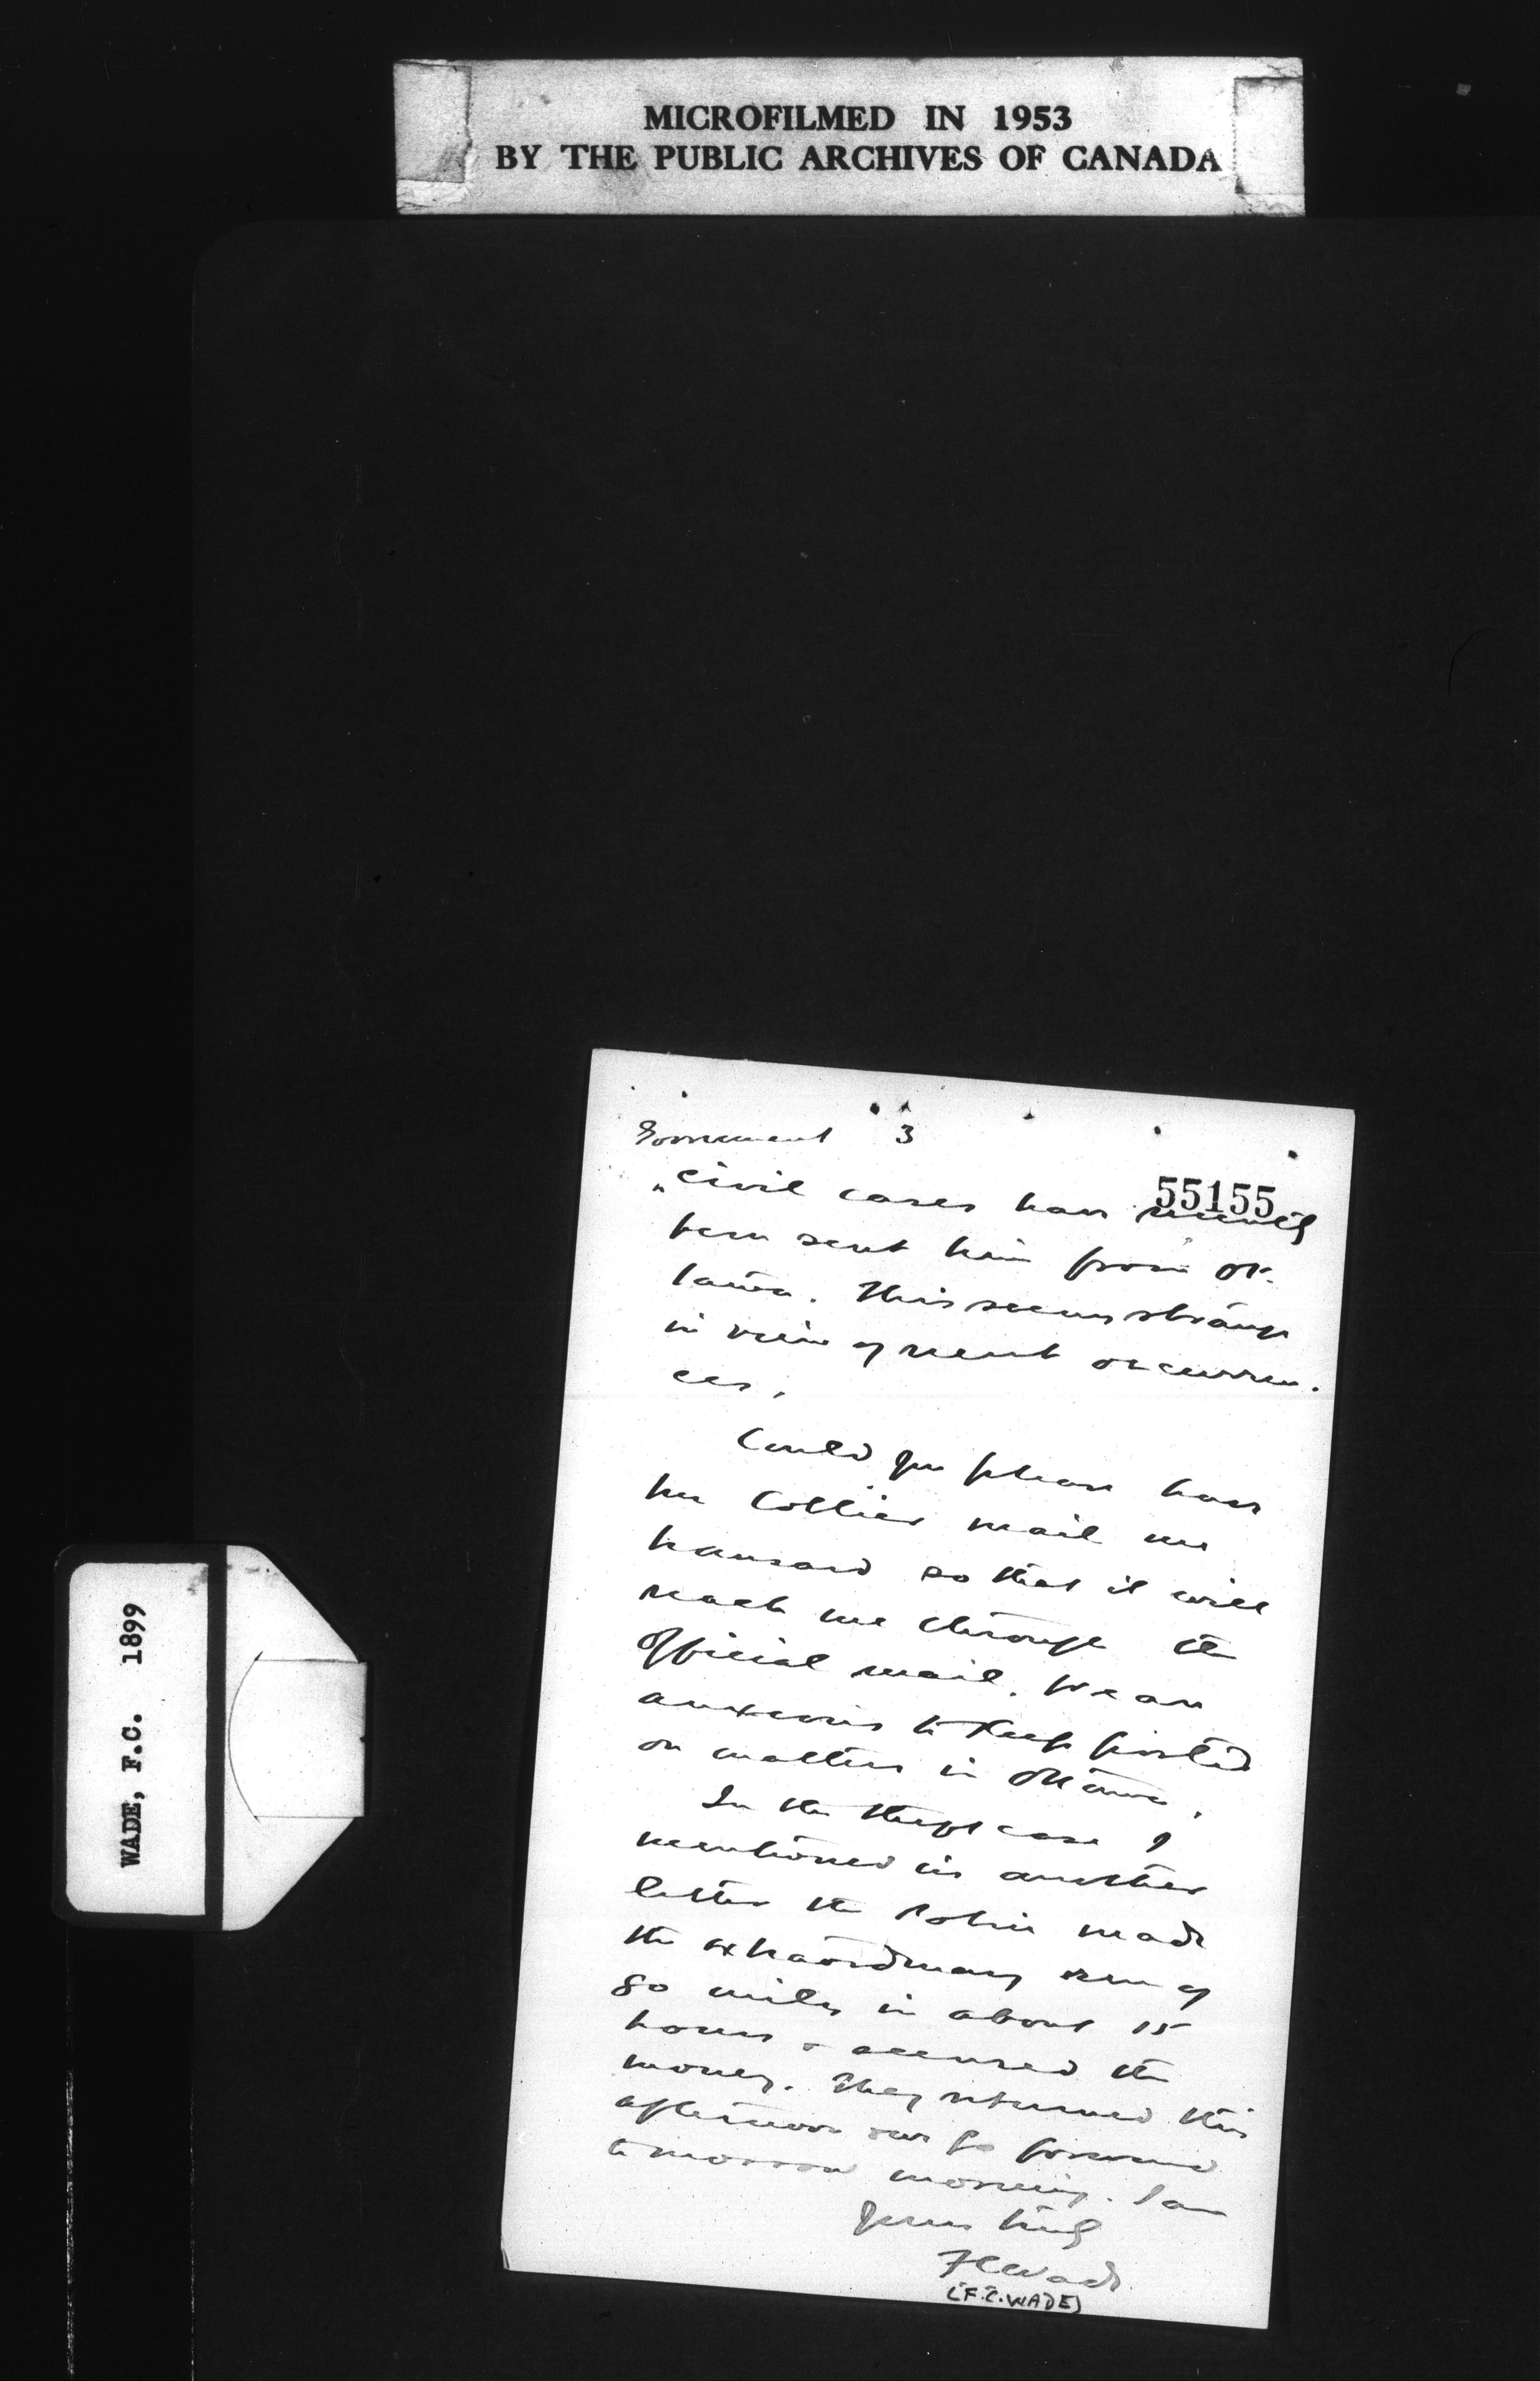 MICROFILMED IN 1953
BY THE PUBLIC ARCHIVES OF CANADA
WADE, F.C. 1899
Government 3
55155
"civil cases have recently
been sent him from Ot-
tawa. This seems strange
in view of recent occurren-
ces.
Could you please have
Mr Collier mail me
Hansard so that it will
reach me through the
official mail. We are
anxious to keep posted
on matters in Ottawa.
In the theft case I
mentioned in another
letter the Police made
the extraordinary run of
80 miles in about 15
hours & secured the
money. They returned this
afternoon and go forward
tomorrow morning. I am
Yours truly
FC Wade
(F.C. WADE)